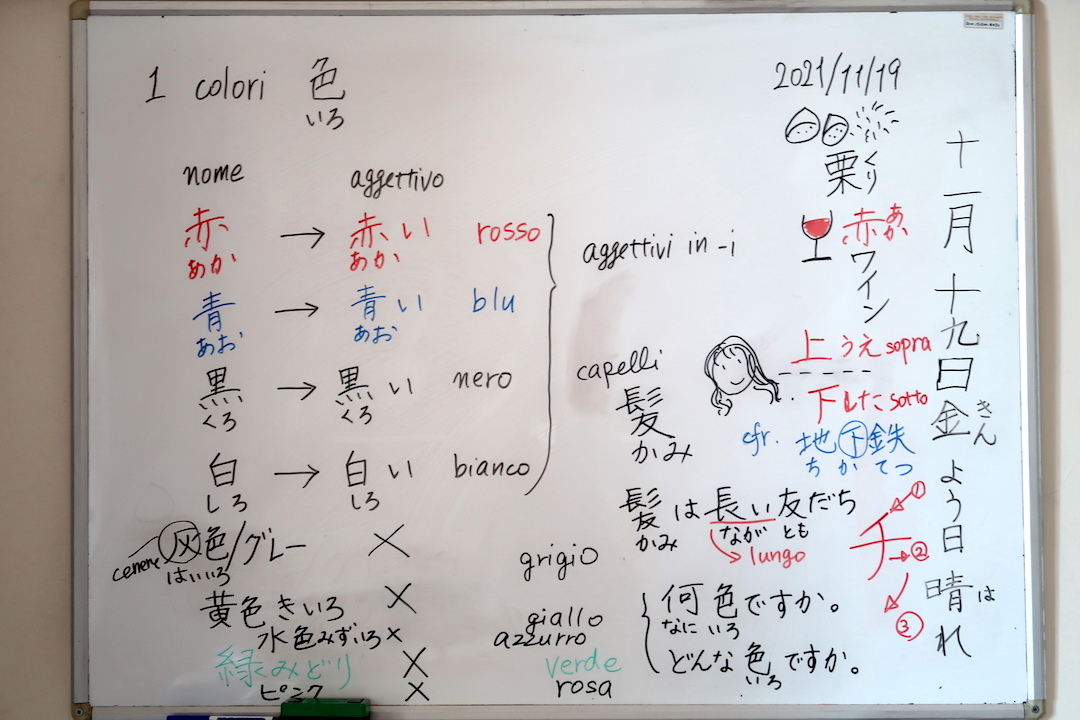 1 colori 色
いろ
nome aggettivo
赤 → 赤い rosso
あか あか
青 → 青い blu
あお あお
黒 → 黒い nero
くろ くろ
白 → 白い bianco
しろ しろ
aggettivi in -i
cenere 灰色/グレー × grigio
はいいろ
黄色 きいろ × giallo
水色 みずいろ × azzurro
緑 みどり × verde
ピンク × rosa
2021/11/19
栗 くり
赤ワイン
あか
capelli
髪
かみ
上 うえ sopra
下 した sotto
cfr. 地下鉄
ちかてつ
髪は長い友だち
かみ なが とも
lungo
チ ① ② ③
何色ですか。
なに いろ
どんな色ですか。
いろ
十一月十九日金よう日 晴れ
きん は